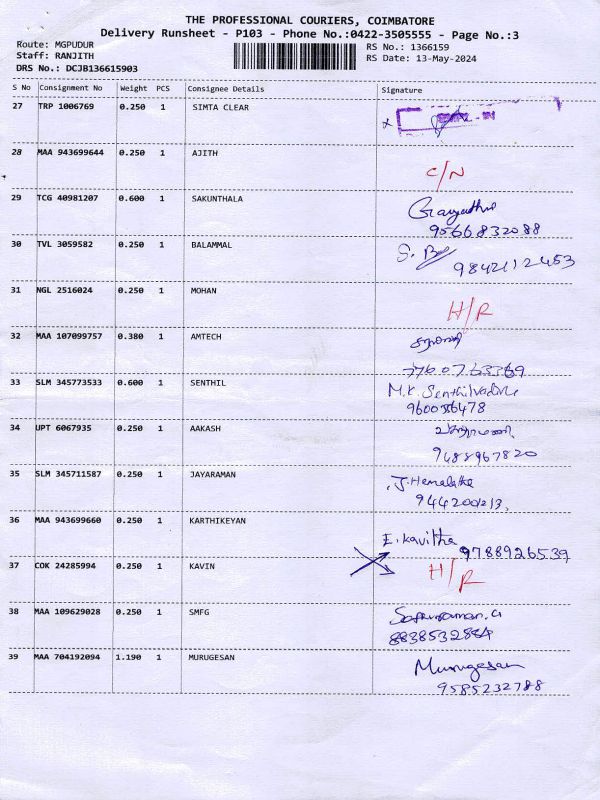 THE PROFESSIONAL COURIERS, COIMBATORE
Delivery Runsheet - P103 - Phone No.:0422-3505555 - Page No.:3
Route: MGPUDUR
Staff: RANJITH
DRS No.: DCJB136615903
RS No.: 1366159
RS Date: 13-May-2024
S No Consignment No Weight PCS Consignee Details Signature
27 TRP 1006769 0.250 1 SIMTA CLEAR
x
28 MAA 943699644 0.250 1 AJITH
C/N
29 TCG 40981207 0.600 1 SAKUNTHALA
Gayathri
9566832088
30 TVL 3059582 0.250 1 BALAMMAL
9842112453
31 NGL 2516024 0.250 1 MOHAN
H/R
32 MAA 107099757 0.380 1 AMTECH
33 SLM 345773533 0.600 1 SENTHIL
M.K. Senthilvadivu
34 UPT 6067935 0.250 1 AAKASH
9488967820
35 SLM 345711587 0.250 1 JAYARAMAN
J. Hemalatha
36 MAA 943699660 0.250 1 KARTHIKEYAN
E. Kavitha 9788926539
37 COK 24285994 0.250 1 KAVIN
H/R
38 MAA 109629028 0.250 1 SMFG
39 MAA 704192094 1.190 1 MURUGESAN
Murugesan
9585232788